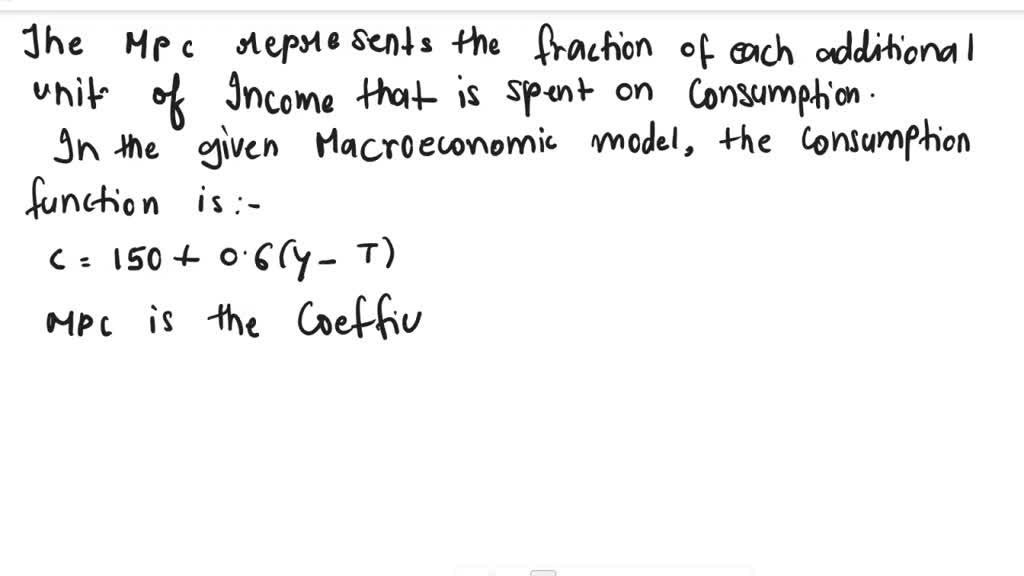 The MPC represents the fraction of each additional
unit of Income that is spent on Consumption.
In the given Macroeconomic model, the Consumption
function is:-
C = 150 + 0.6(y - T)
MPC is the Coeffiu